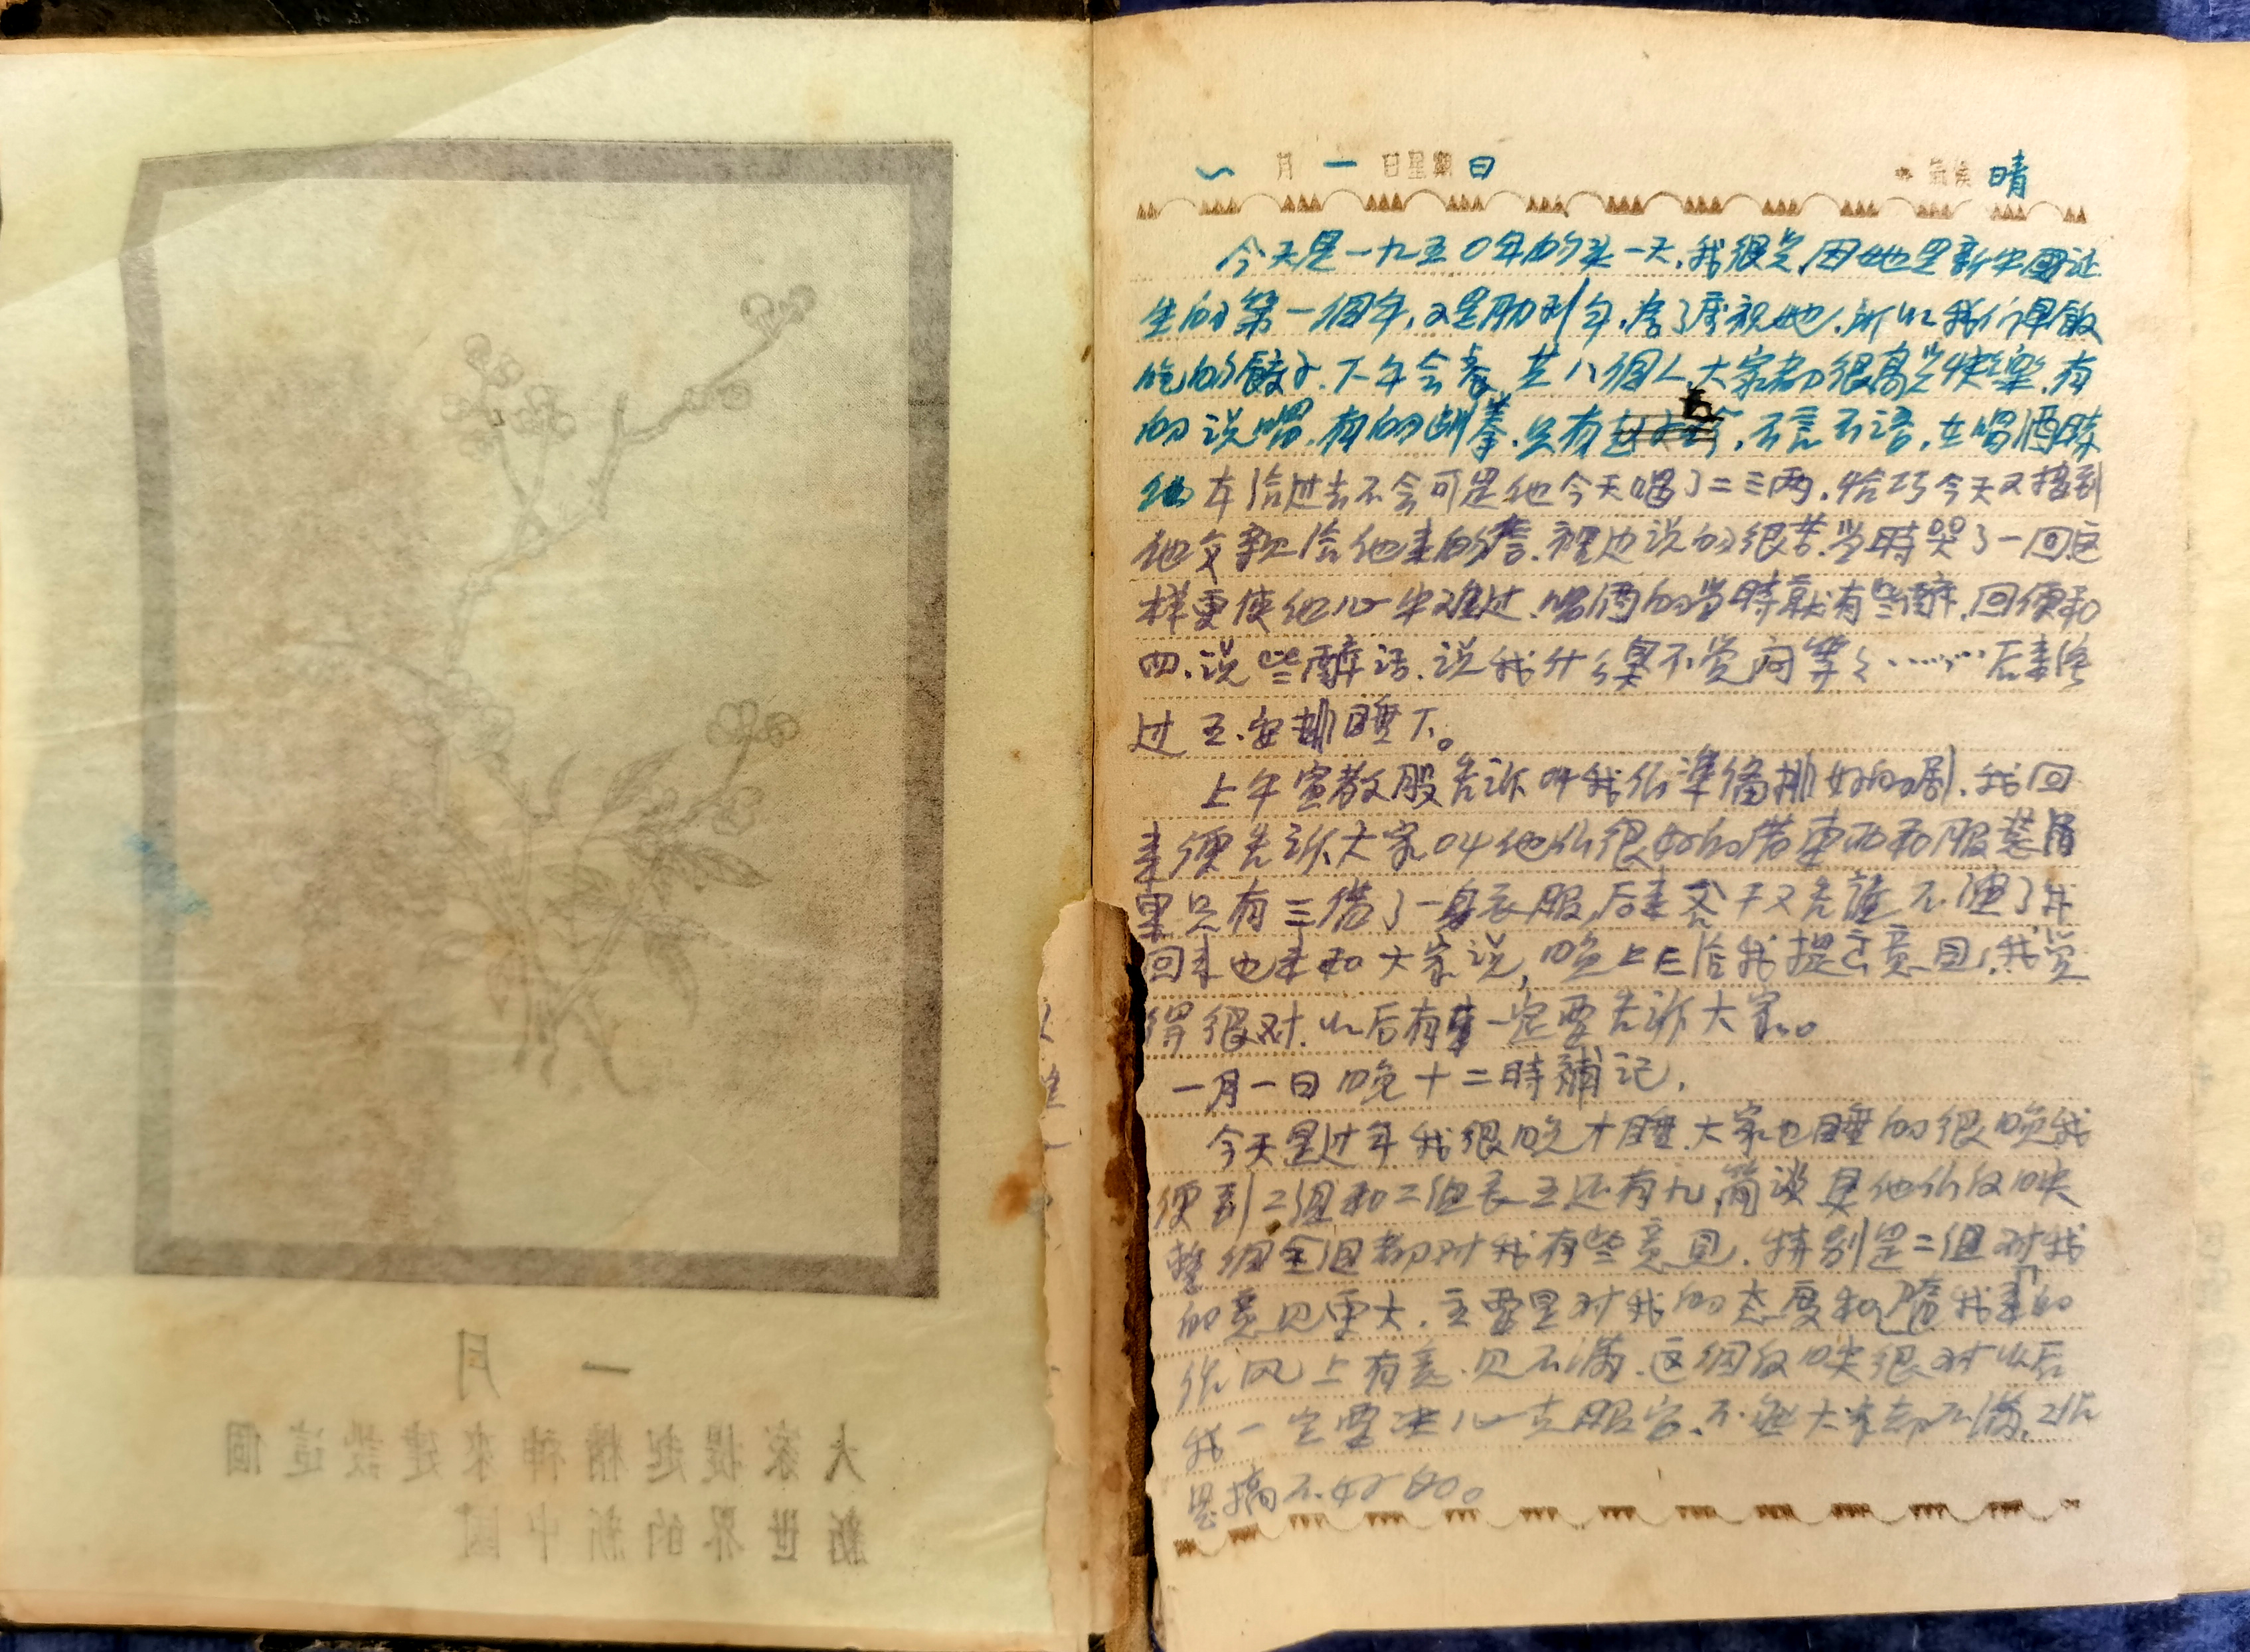 一月
大家提起精神來建設這個
新世界的新中國
一月一日星期日 氣候 晴
今天是一九五0年的头一天,我很兴,因她是新中國诞
生的第一個年,又是勝利年,為了慶祝她,所以我们早飯
吃的餃子.下午会餐,共八個人,大家都很高兴快樂.有
的说唱.有的划拳.只有 五,不言不语,在喝酒時
他 过去不会可是他今天喝了二三两.恰巧今天又接到
他父親给他来的信.裡边说的很苦.当時哭了一回.这
样更使他心中难过.喝酒的当時就有些醉.回便和
四.说些醉话.说我什么架不 等々……后来
过五.安排睡下。
上午宣教股告诉叫我们準備排好的剧.我回
来便告诉大家叫他们很好的借東西和服装.结
果只有三借了一身衣服,后来 干又告 不演了我
回来也未和大家说,晚上三给我提去意見,我觉
得很对.以后有事一定要告诉大家。
一月一日晚十二時補记.
今天是过年我很晚才睡.大家也睡的很晚我
便到二组和二组长五还有九,简谈 他们反映
整個全组都对我有些意见.特别是二组对我
的意见更大.主要是对我的态度和 我来的
作风上有意见不满.这個反映很对以后
我一定要决心克服它.不然大家都不满,工作
是搞不好的。